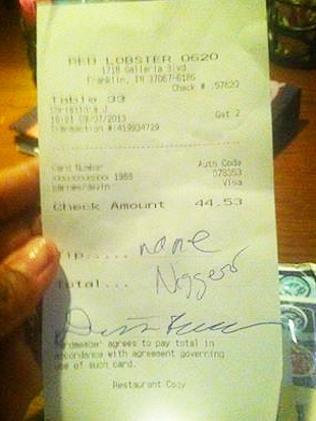 RED LOBSTER 0620
1718 Galleria Blvd
Franklin, TN 37067-6186
Check # .57820
Table 33
Christina J Gst 2
18:01 09/07/2013
Transaction #:419934729
Card Number Auth Code
xxxxxxxxxxxx 1988 078353
barnes/devin Visa
Check Amount 44.53
Tip..... none
Total... Nigger
Cardmember agrees to pay total in
accordance with agreement governing
use of such card.
Restaurant Copy